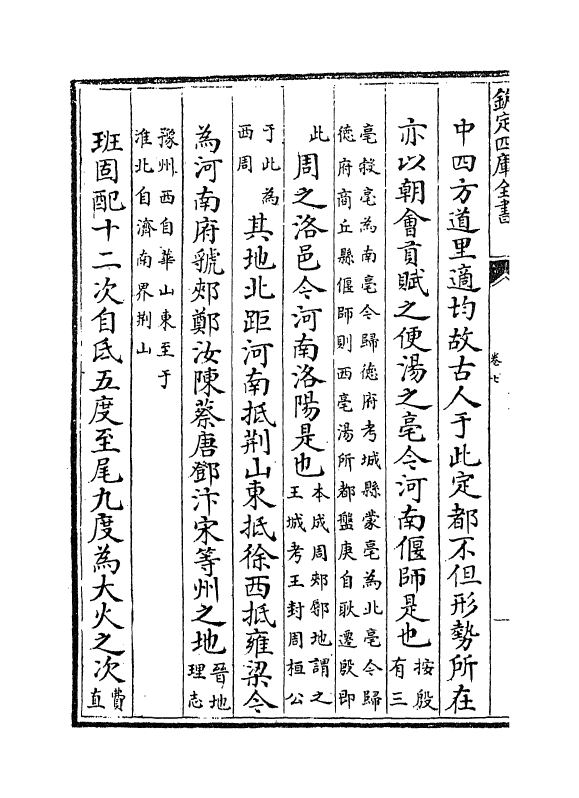 欽定四庫全書
卷七
中四方道里適均故古人于此定都不但形勢所在
亦以朝會貢賦之便湯之亳今河南偃師是也
按殷
有三
亳穀亳為南亳今歸德府考城縣蒙亳為北亳今歸
徳府商丘縣偃師則西亳湯所都盤庚自耿遷殷即
此
周之洛邑今河南洛陽是也
本成周郟鄏地謂之
王城考王封周桓公
于此為
西周
其地北距河南抵荆山東抵徐西抵雍梁今
為河南府虢郟鄭汝陳蔡唐鄧汴宋等州之地
晉地
理志
豫州西自華山東至于
淮北自濟南界荆山
班固配十二次自氐五度至尾九度為大火之次
費
直